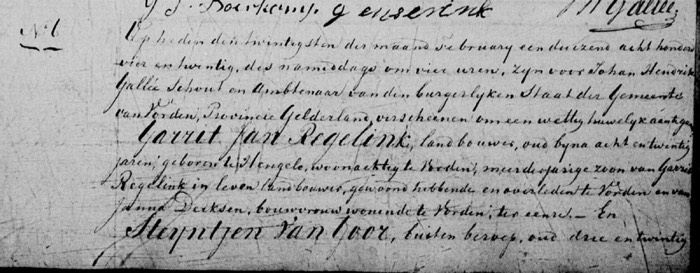 G J. Boerkamp. genserink
No 6
Op heden den twintigsten der maand February een duizend acht honderd
vier en twintig, des namiddags om vier uren, zyn voor Johan Hendrik
Gallée Schout en Ambtenaar van den burgerlyken Staat der Gemeente
van Vorden, Provincie Gelderland, verscheenen om een wettig huwelyk aan te gaan
Garrit Jan Regelink, landbouwer, oud byna acht en twintig
jaren, geboren te Hengelo, woonachtig te Vorden, meerderjarige zoon van Garrit
Regelink in leven landbouwer, gewoond hebbende en overleden te Vorden en van
Janna Dercksen, bouwvrouw wonende te Vorden, ter eenre. - En
Steyntjen Van Goor, buiten beroep, oud drie en twintig